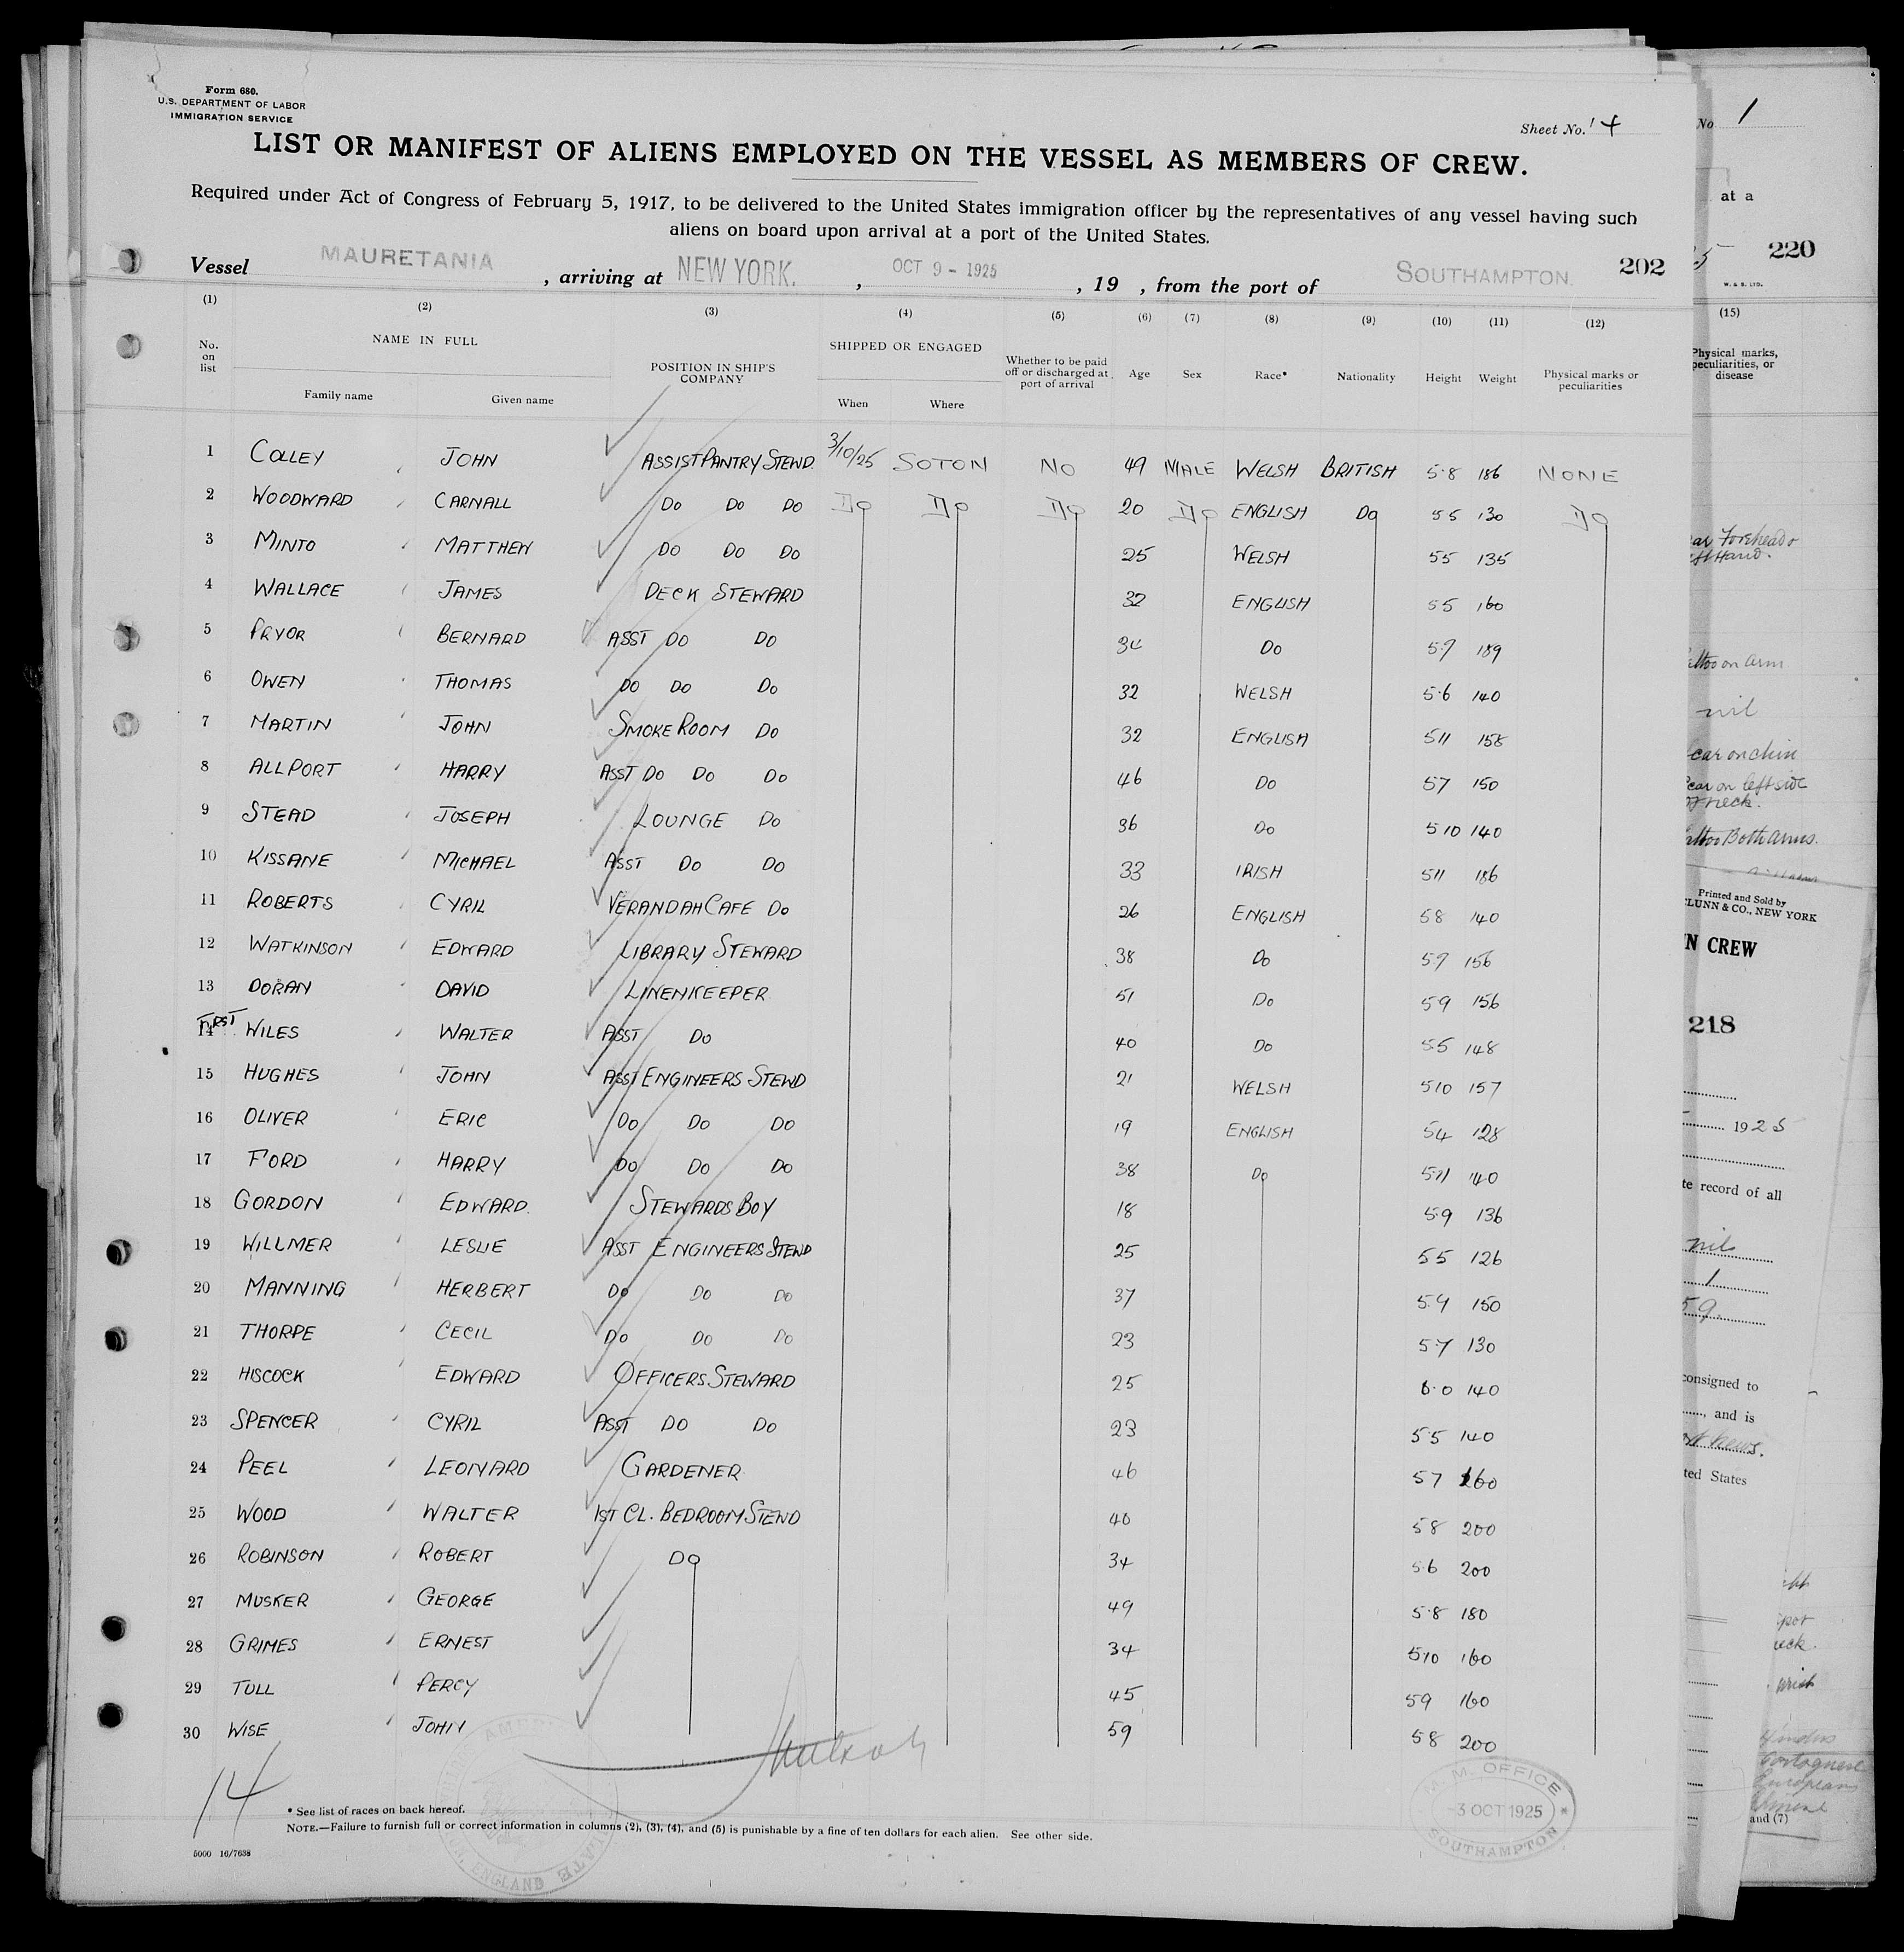 Form 680.
U.S. DEPARTMENT OF LABOR
IMMIGRATION SERVICE
Sheet No. 14
LIST OR MANIFEST OF ALIENS EMPLOYED ON THE VESSEL AS MEMBERS OF CREW.
Required under Act of Congress of February 5, 1917, to be delivered to the United States immigration officer by the representatives of any vessel having such
aliens on board upon arrival at a port of the United States.
Vessel MAURETANIA, arriving at NEW YORK., OCT 9 - 1925, 19 , from the port of SOUTHAMPTON. 202
(1) (2) (3) (4) (5) (6) (7) (8) (9) (10) (11) (12)
No. on list NAME IN FULL Family name Given name POSITION IN SHIP'S COMPANY SHIPPED OR ENGAGED When Where Whether to be paid off or discharged at port of arrival Age Sex Race* Nationality Height Weight Physical marks or peculiarities
1 COLLEY JOHN ASSIST PANTRY STEWD. 3/10/25 SOTON NO 49 MALE WELSH BRITISH 5·8 186 NONE
2 WOODWARD CARNALL DO DO DO DO DO DO 20 DO ENGLISH DO 5 5 130 DO
3 MINTO MATTHEW DO DO DO 25 WELSH 5 5 135
4 WALLACE JAMES DECK STEWARD 32 ENGLISH 5 5 160
5 PRYOR BERNARD ASST DO DO DO 5·7 189
6 OWEN THOMAS DO DO DO 32 WELSH 5·6 140
7 MARTIN JOHN SMOKE ROOM DO 32 ENGLISH 5 11 158
8 ALLPORT HARRY ASST DO DO DO 46 DO 5 7 150
9 STEAD JOSEPH LOUNGE DO 36 DO 5 10 140
10 KISSANE MICHAEL ASST DO DO 33 IRISH 5 11 186
11 ROBERTS CYRIL VERANDAH CAFE DO 26 ENGLISH 5 8 140
12 WATKINSON EDWARD LIBRARY STEWARD 38 DO 5 9 156
13 DORAN DAVID LINENKEEPER 51 DO 5 9 156
14 FIRST WILES WALTER ASST DO 40 DO 5·5 148
15 HUGHES JOHN ASST ENGINEERS STEWD 21 WELSH 5 10 157
16 OLIVER ERIC DO DO DO 19 ENGLISH 5 4 128
17 FORD HARRY DO DO DO 38 DO 5 11 140
18 GORDON EDWARD. STEWARDS BOY 18 5 9 136
19 WILLMER LESLIE ASST ENGINEERS STEWD 25 5 5 126
20 MANNING HERBERT DO DO DO 37 5·9 150
21 THORPE CECIL DO DO DO 23 5·7 130
22 HISCOCK EDWARD OFFICERS STEWARD 25 6·0 140
23 SPENCER CYRIL ASST DO DO 23 5·5 140
24 PEEL LEONARD GARDENER 46 5 7 160
25 WOOD WALTER 1ST CL. BEDROOM STEWD 40 5 8 200
26 ROBINSON ROBERT DO 34 5·6 200
27 MUSKER GEORGE 49 5·8 180
28 GRIMES ERNEST 34 5 10 160
29 TULL PERCY 45 5 9 160
30 WISE JOHN 59 5 8 200
14
M.M. OFFICE
-3 OCT 1925
SOUTHAMPTON
* See list of races on back hereof.
NOTE.—Failure to furnish full or correct information in columns (2), (3), (4), and (5) is punishable by a fine of ten dollars for each alien. See other side.
5000 16/7638
No 1
at a
220
W. & S. LTD.
(15)
Physical marks,
peculiarities, or
disease
nil
Printed and Sold by
CLUNN & CO., NEW YORK
CREW
218
1925
te record of all
nil
1
59
consigned to
, and is
ted States
and (7)